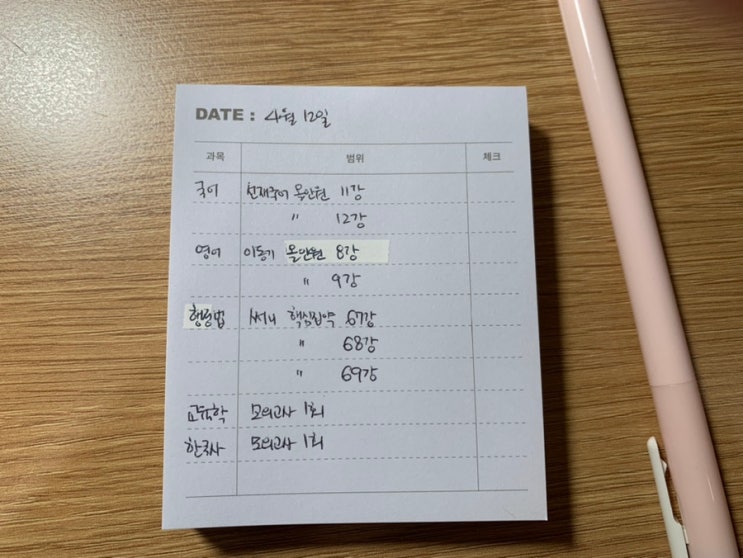 DATE : 4월 12일
과목 범위 체크
국어 선재국어 올인원 11강
" 12강
영어 이동기 올인원 8강
" 9강
행정법 써니 핵심집약 67강
" 68강
" 69강
교육학 모의고사 1회
한국사 모의고사 1회